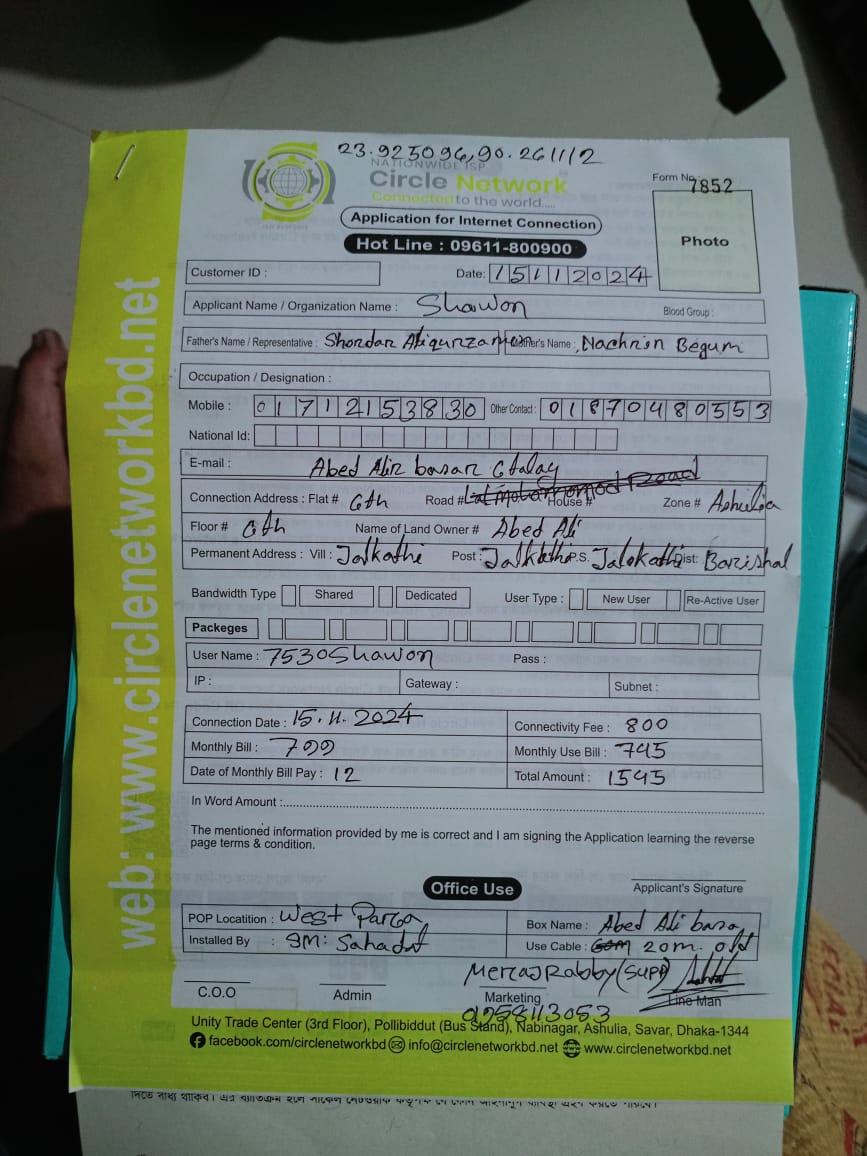 23.925096,90.261112
NATIONWIDE ISP
Circle Network
Connected to the world.....
Form No. 7852
Application for Internet Connection
Hot Line : 09611-800900
Photo
Customer ID :
Date: 15112024
Applicant Name / Organization Name : Shawon Blood Group :
Father's Name / Representative : Shordar Mother's Name : Nachrin Begum
Occupation / Designation :
Mobile : 01712153830 Other Contact : 01870480553
National Id:
E-mail : Abed Alir basar 6talay
Connection Address : Flat # 6th Road # House # Zone # Ashulia
Floor # 6th Name of Land Owner # Abed Ali
Permanent Address : Vill : Jalkathi Post : Jalkathi P.S. Jalokathi Dist: Barishal
Bandwidth Type Shared Dedicated User Type : New User Re-Active User
Packeges
User Name : 7530Shawon Pass :
IP : Gateway : Subnet :
Connection Date : 15.11.2024 Connectivity Fee : 800
Monthly Bill : 799 Monthly Use Bill : 745
Date of Monthly Bill Pay : 12 Total Amount : 1545
In Word Amount :
The mentioned information provided by me is correct and I am signing the Application learning the reverse
page terms & condition.
Applicant's Signature
Office Use
POP Locatition : West Parga Box Name : Abed Ali basa
Installed By : SM: Sahadat Use Cable : 20m. old
Meraj Rabby (SUPP)
C.O.O Admin Marketing Line Man
Unity Trade Center (3rd Floor), Pollibiddut (Bus Stand), Nabinagar, Ashulia, Savar, Dhaka-1344
facebook.com/circlenetworkbd info@circlenetworkbd.net www.circlenetworkbd.net
web: www.circlenetworkbd.net